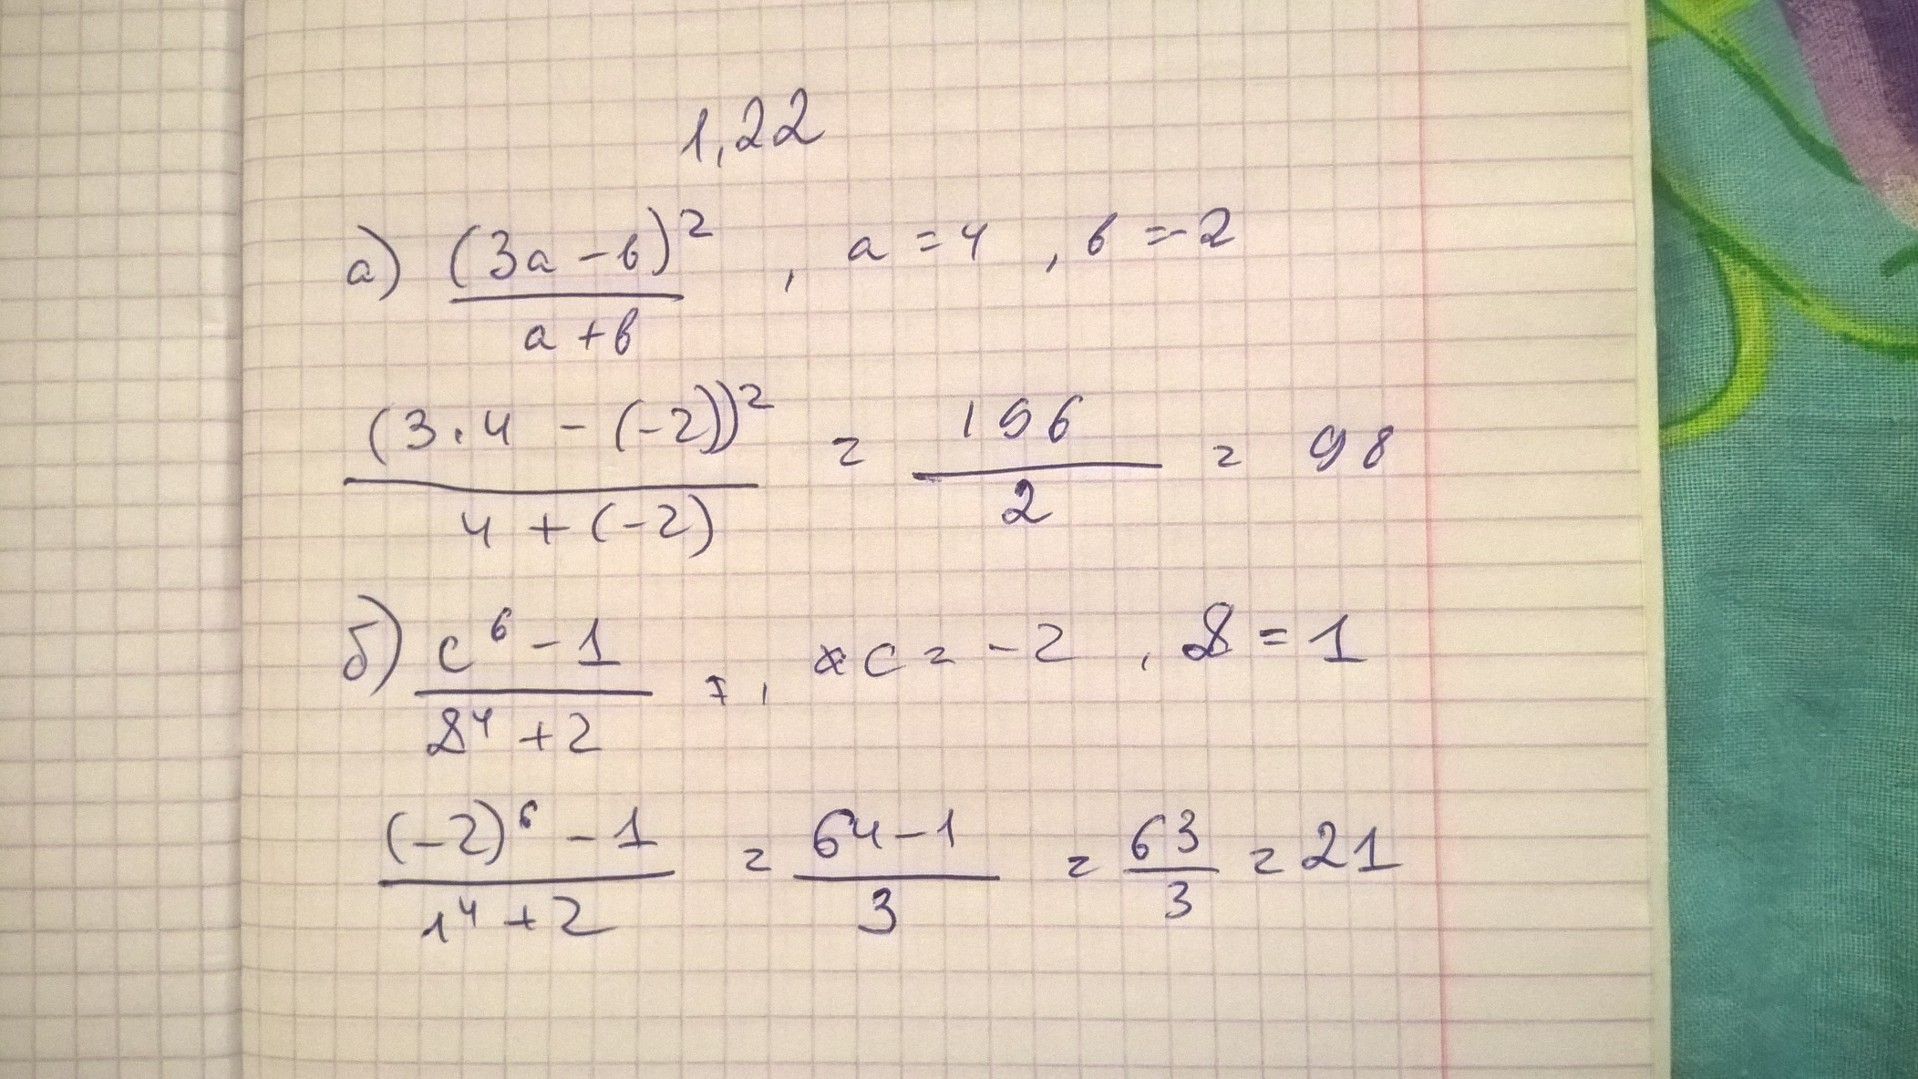 1,22
а) (3а - в)² / а + в , а = 4 , в = -2
(3·4 - (-2))² / 4 + (-2) = 196 / 2 = 98
б) c⁶ - 1 / d⁴ + 2 , c = -2 , d = 1
(-2)⁶ - 1 / 1⁴ + 2 = 64 - 1 / 3 = 63 / 3 = 21